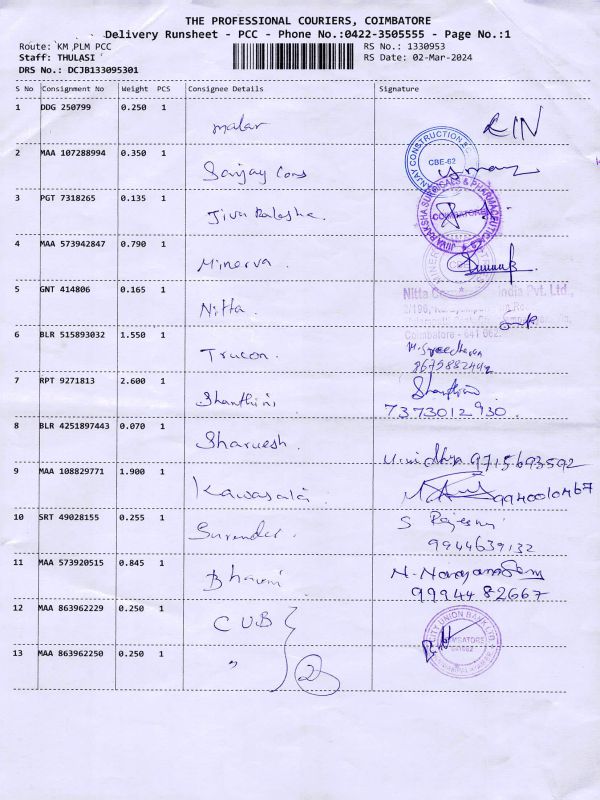 THE PROFESSIONAL COURIERS, COIMBATORE
Delivery Runsheet - PCC - Phone No.:0422-3505555 - Page No.:1
Route: KM PLM PCC RS No.: 1330953
Staff: THULASI RS Date: 02-Mar-2024
DRS No.: DCJB133095301
S No Consignment No Weight PCS Consignee Details Signature
1 DDG 250799 0.250 1 malar
2 MAA 107288994 0.350 1 Sanjay Cons
CBE-62
3 PGT 7318265 0.135 1 Jiva Raksha.
JIVA RAKSHA SURGICALS & PHARMACEUTICALS
COIMBATORE
4 MAA 573942847 0.790 1 Minerva.
5 GNT 414806 0.165 1 Nitta.
Nitta India Pvt. Ltd.,
Coimbatore - 641 062.
6 BLR 515893032 1.550 1 Trucon.
7 RPT 9271813 2.600 1 Shanthini Shanthini
7373012930.
8 BLR 4251897443 0.070 1 Sharvesh. 9715693592
9 MAA 108829771 1.900 1
10 SRT 49028155 0.255 1 Surender. S
9944639132
11 MAA 573920515 0.845 1 Bhavani
9994482667
12 MAA 863962229 0.250 1 CUB
CITY UNION BANK LTD.
13 MAA 863962250 0.250 1 " 2